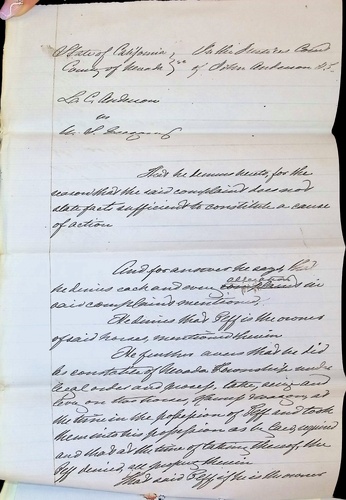 State of California } ss In the Justices Court
County of Nevada } of John Anderson J.P.
L. C. Anderson
vs
That he demurs hereto, for the
reason that the said complaint does not
state facts sufficient to constitute a cause
of action
And for answer he says, that
he denies each and every allegation in
said complaint mentioned.
He denies that Plff is the owner
of said horses, mentioned therein
He further avers that he did
as constable of Nevada Township under
legal order and process, take, seize and
levy on two horses, spring wagon, as
the time in the possession of Plff and took
them into his possession as by law required
and that at the time of taking thereof the
Plff denied all property therein
That said Plff if he is the owner